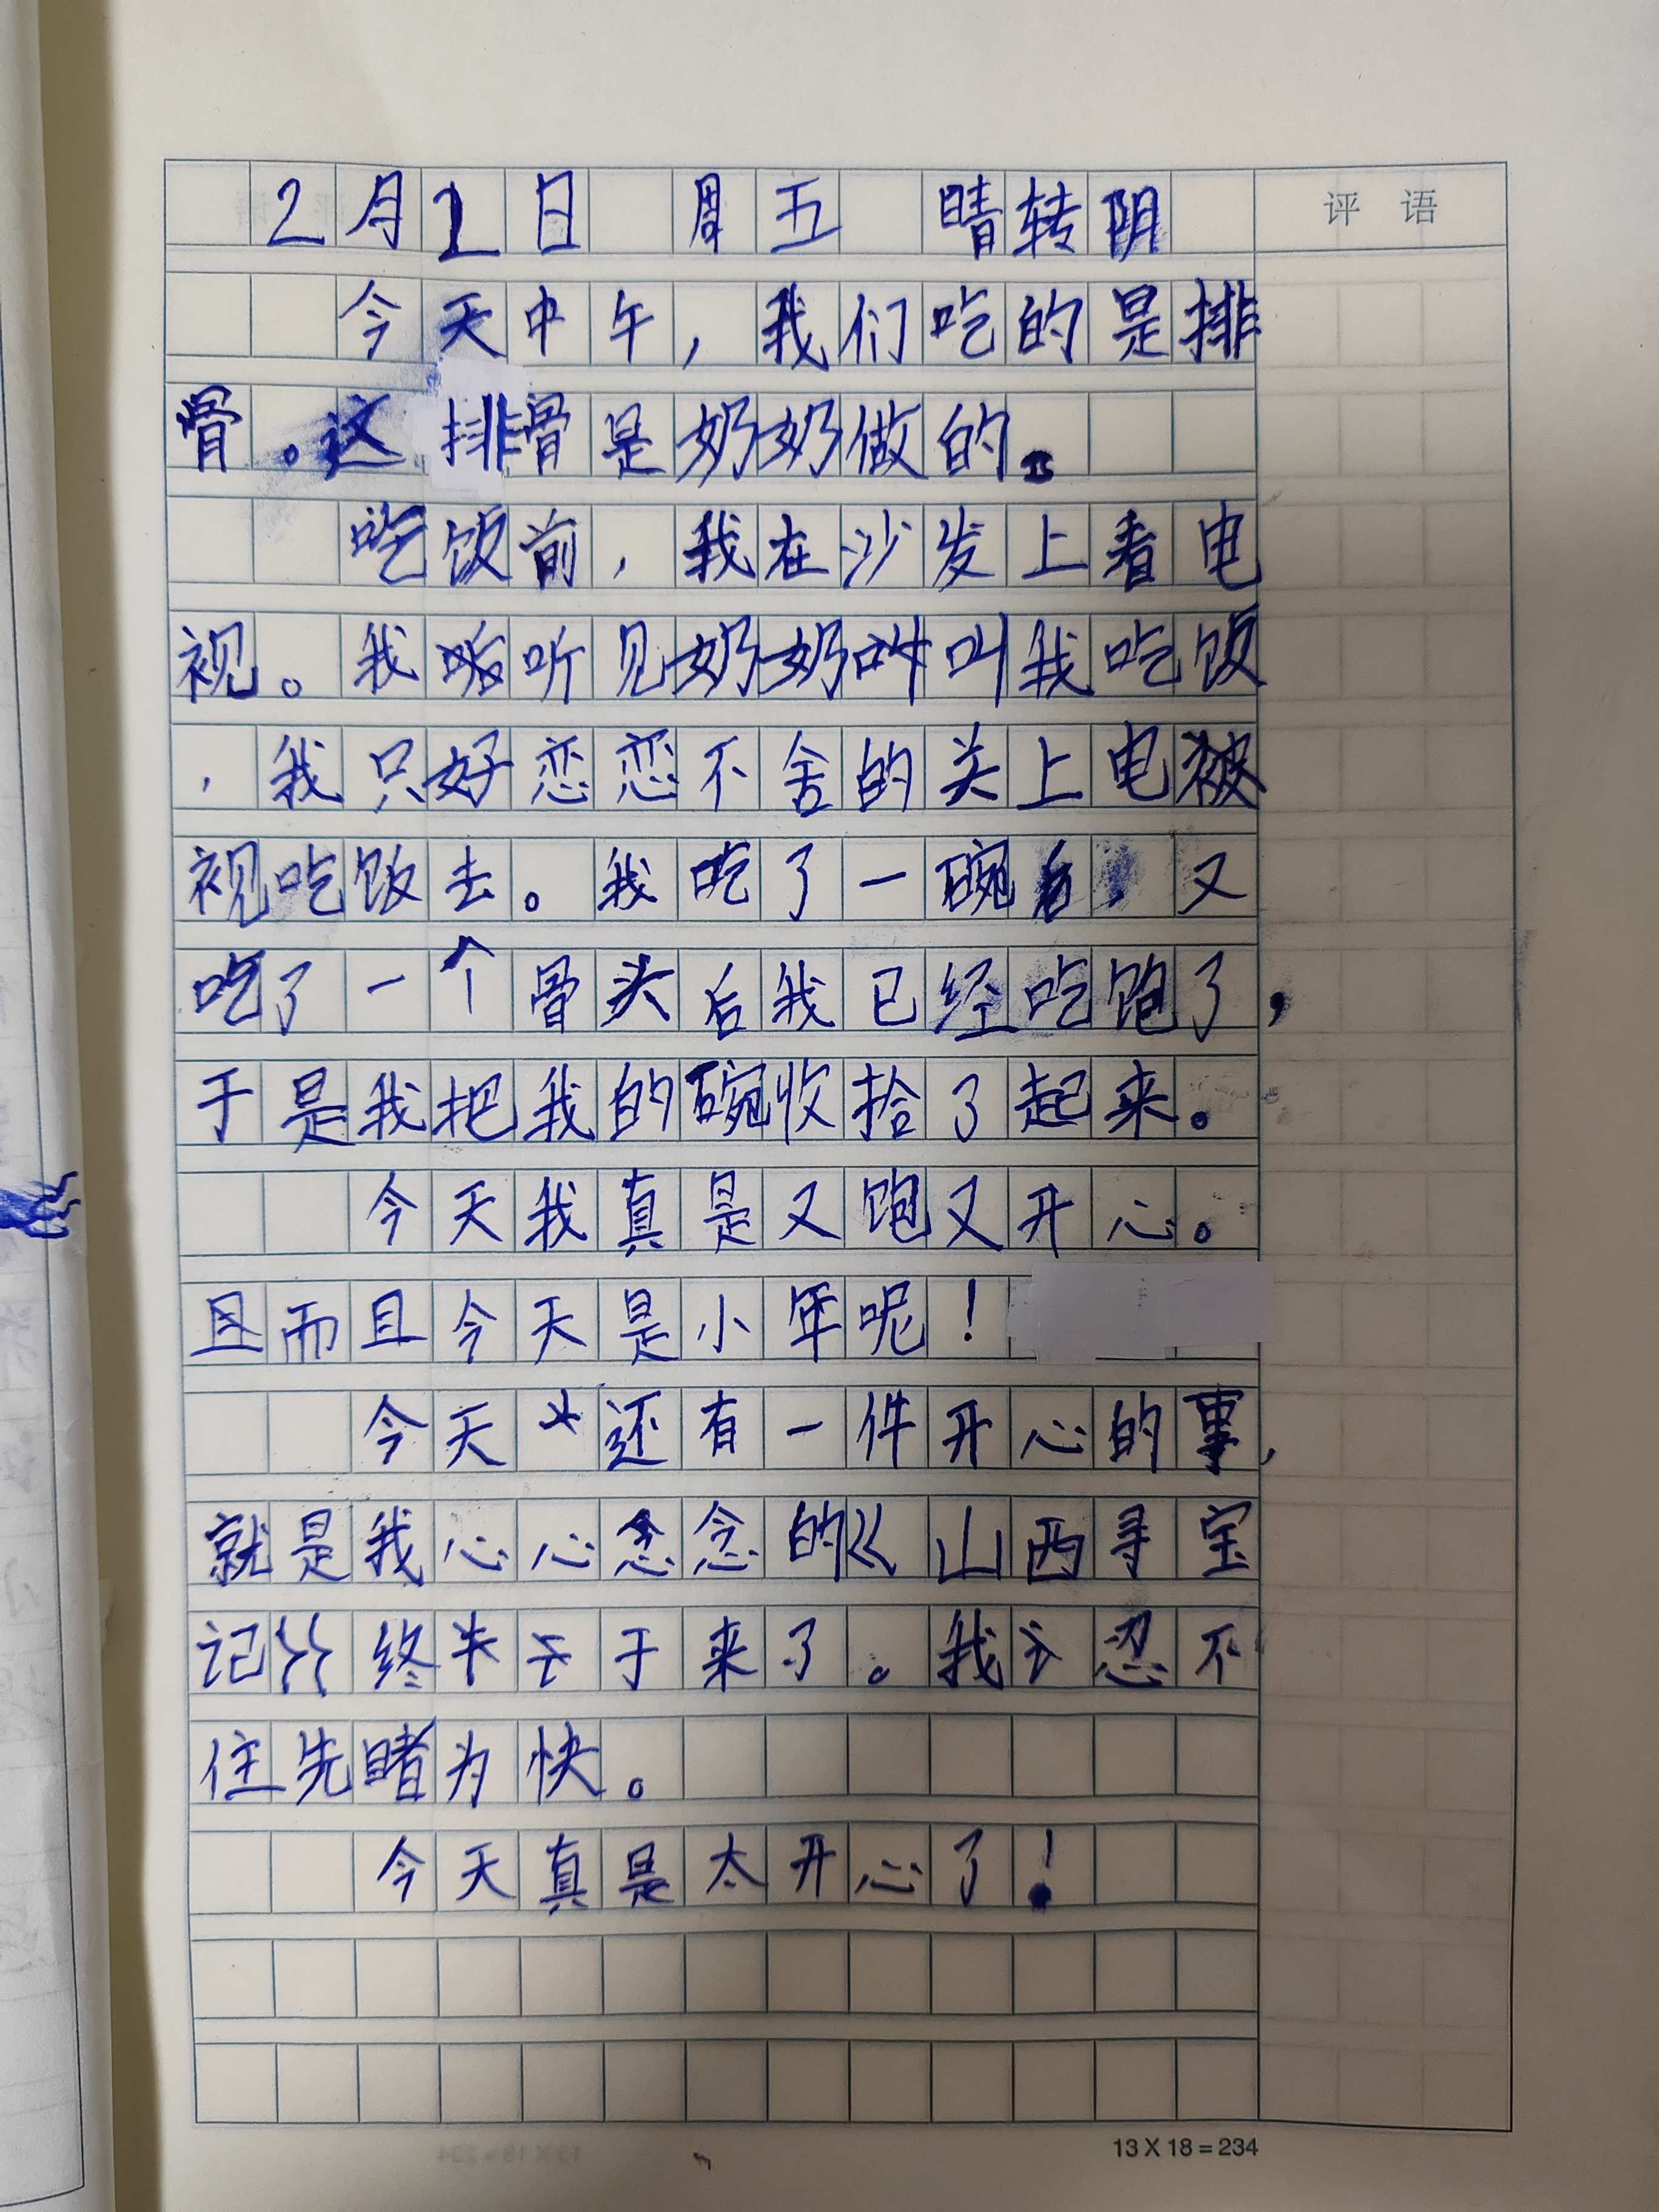 2月2日 周五 晴转阴
评语
今天中午，我们吃的是排
骨。这排骨是奶奶做的。
吃饭前，我在沙发上看电
视。我听见奶奶叫我吃饭
，我只好恋恋不舍的关上电
视吃饭去。我吃了一碗，又
吃了一个骨头后我已经吃饱了，
于是我把我的碗收拾了起来。
今天我真是又饱又开心。
且而且今天是小年呢！
今天还有一件开心的事，
就是我心心念念的《山西寻宝
记》终于来了。我忍不
住先睹为快。
今天真是太开心了！
13 X 18 = 234